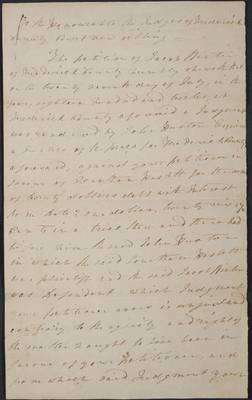 To the Honourable the Judges of Frederick
County Court now sitting
The petition of Jacob
of Frederick County humbly sheweth that
on the twenty seventh day of July, in the
year, eighteen hundred and twelve, at
Frederick County aforesaid a Judgment
was rendered by John Huston Esquire
a Justice of the peace for Frederick County
aforesaid, against your petitioner in
favour of Jonathan for the sum
of twenty dollars debt with Interest
from date &
Cents in a case then and there had
before him the said John Huston
in which the said Jonathan
was plaintiff and the said Jacob
was Defendant which Judgment
your petitioner avers is unjust and
contrary to the equity and right of
the matter ought to have been in
favour of your Petitioner, and
from which said Judgment your